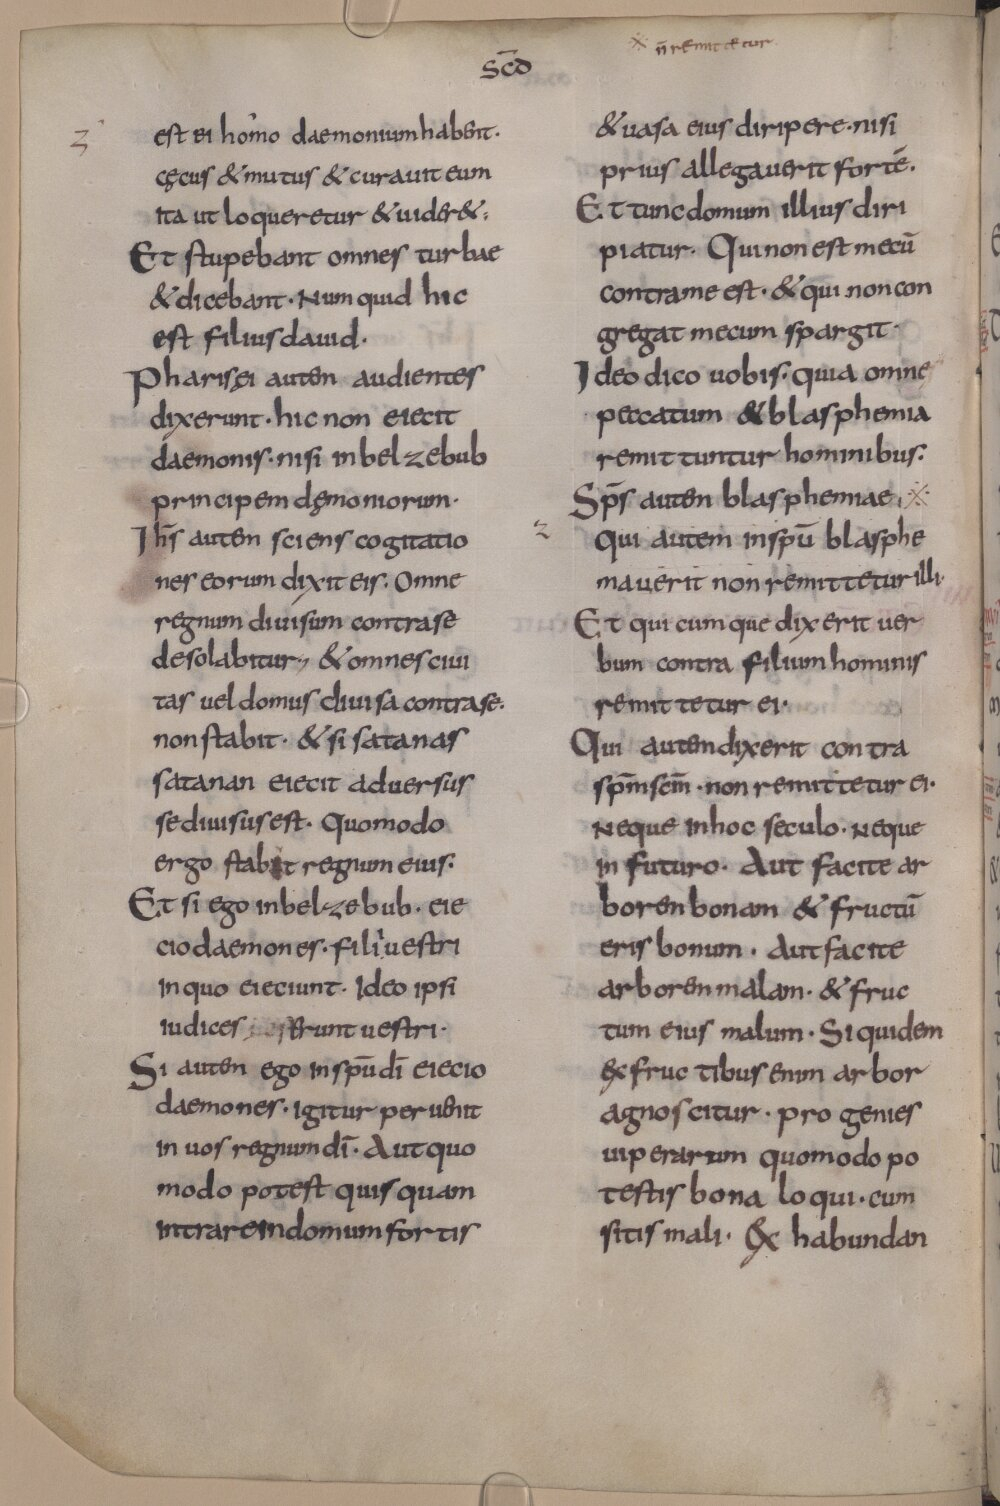 ※ n̄ remittetur
sc̄d
est ei homo daemonium habent.
cęcus & mutus & curauit eum
ita ut loqueretur & uider&;
Et stupebant omnes turbae
& dicebant. Numquid hic
est filius dauid.
Pharisęi autem audientes
dixerunt. hic non eiecit
daemonis. nisi in belzebub
principem dęmoniorum.
Ihs̄ autem sciens cogitatio
nes eorum dixit eis. Omne
regnum diuisum contra se
desolabitur, & omnes ciui
tas uel domus diuisa contra se.
non stabit. & si satanas
satanan eiecit aduersus
se diuisus est. Quomodo
ergo stabit regnum eius.
Et si ego in belzebub. eie
cio daemones. filii uestri
in quo eieciunt. Ideo ipsi
iudices erunt uestri.
Si autem ego in spū dī eiecio
daemones. igitur peruenit
in uos regnum dī. Aut quo
modo potest quisquam
intrare in domum fortis
& uasa eius diripere. nisi
prius allegauerit fortē.
Et tunc domum illius diri
piatur. Qui non est mecū
contra me est. & qui non con
gregat mecum spargit.
Ideo dico uobis. quia omne
peccatum & blasphemia
remittuntur hominibus.
Sps̄ autem blasphemiae ※
Qui autem in spū blasphe
mauerit non remittetur illi.
Et quicumque dixerit uer
bum contra filium hominis
remittetur ei.
Qui autem dixerit contra
spm̄ scm̄. non remittetur ei.
Neque in hoc seculo. Neque
in futuro. Aut facite ar
borem bonam & fructū
eris bonum. Aut facite
arborem malam. & fruc
tum eius malum. Si quidem
ex fructibus enim arbor
agnoscitur. progenies
uiperarum quomodo po
testis bona loqui. cum
sitis mali. Ex habundan